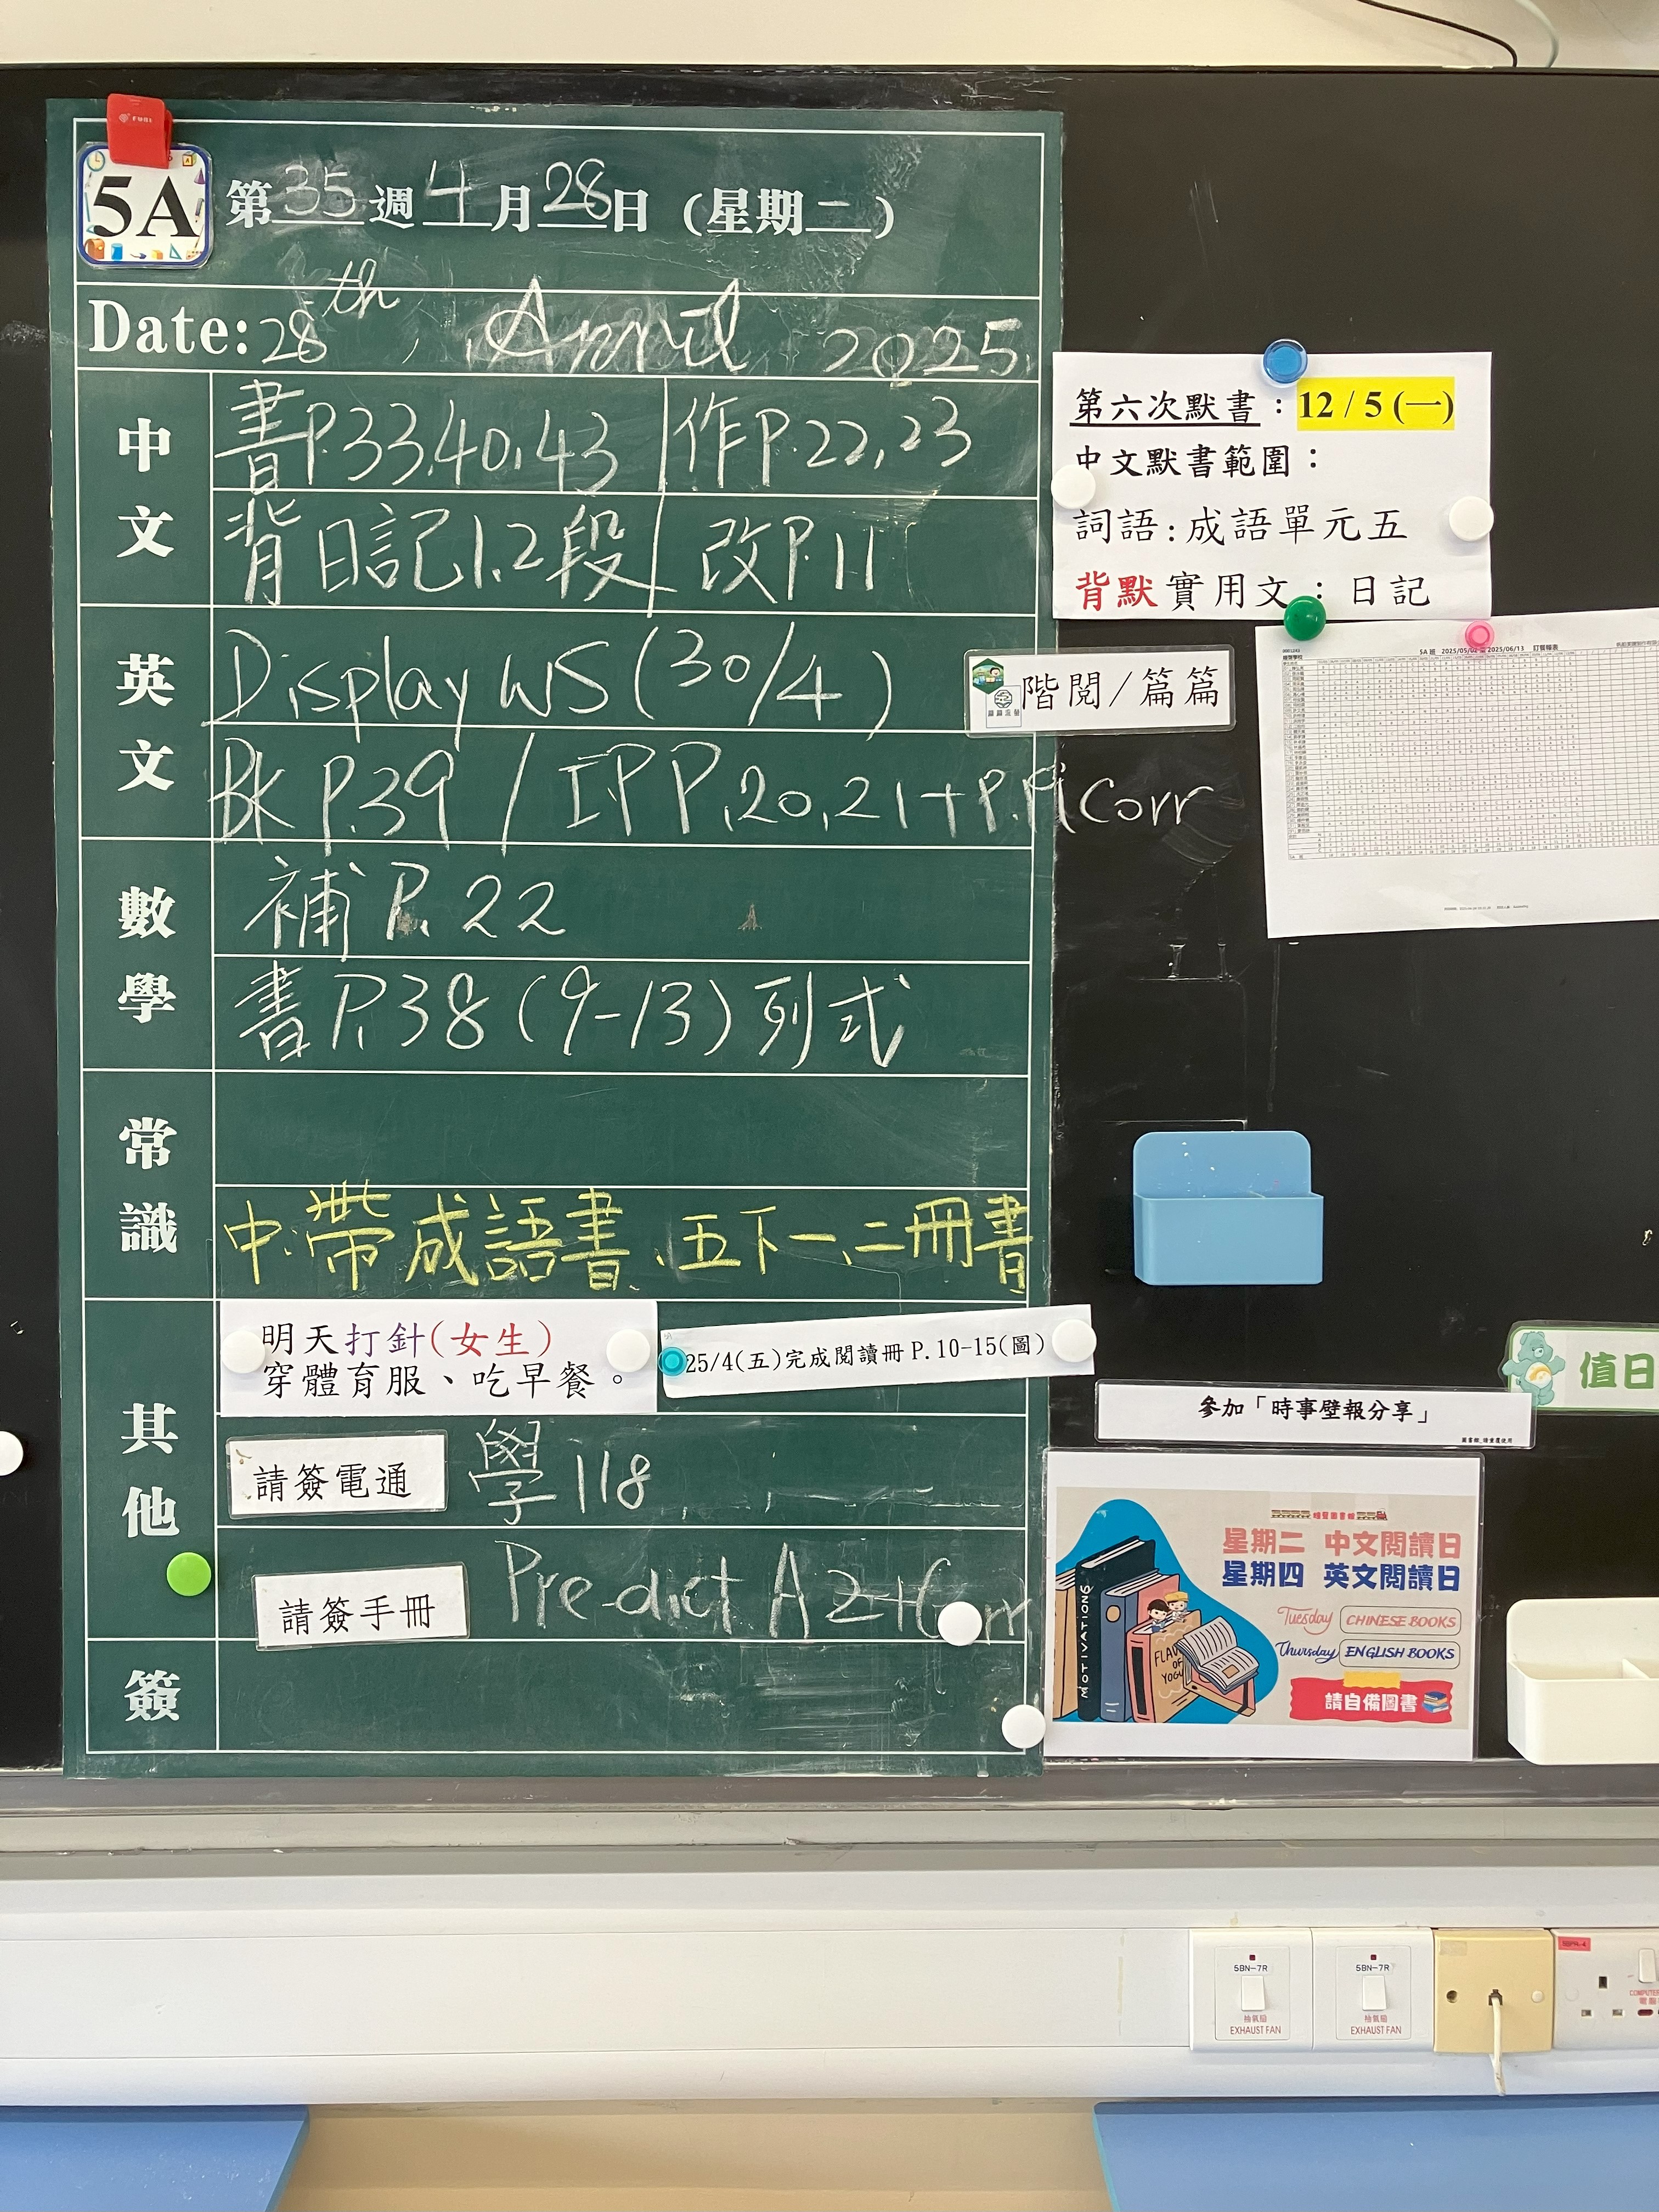 5A
第35週4月28日(星期二)
Date: 28th, April 2025
中文
書P.33,40,43 作P.22,23
背日記1,2段 改P.11
英文
Display WS (30/4)
階閱/篇篇
Bk P.39 / IP P.20,21+P.
Corr
數學
補 P.22
書 P.38 (9-13) 列式
常識
中:帶成語書、五下一、二冊書
其他
明天打針(女生)
穿體育服、吃早餐。
25/4(五)完成閱讀冊 P.10-15(圖)
請簽電通
學118
請簽手冊
Pre-dict A2+Corr
簽
第六次默書:12/5(一)
中文默書範圍:
詞語:成語單元五
背默實用文:日記
5A 班 2025/05/02 至 2025/06/13 訂餐報表
值日
參加「時事壁報分享」
星期二 中文閱讀日
星期四 英文閱讀日
Tuesday CHINESE BOOKS
Thursday ENGLISH BOOKS
請自備圖書
MOTIVATIONS
5BN-7R
抽氣扇
EXHAUST FAN
5BN-7R
抽氣扇
EXHAUST FAN